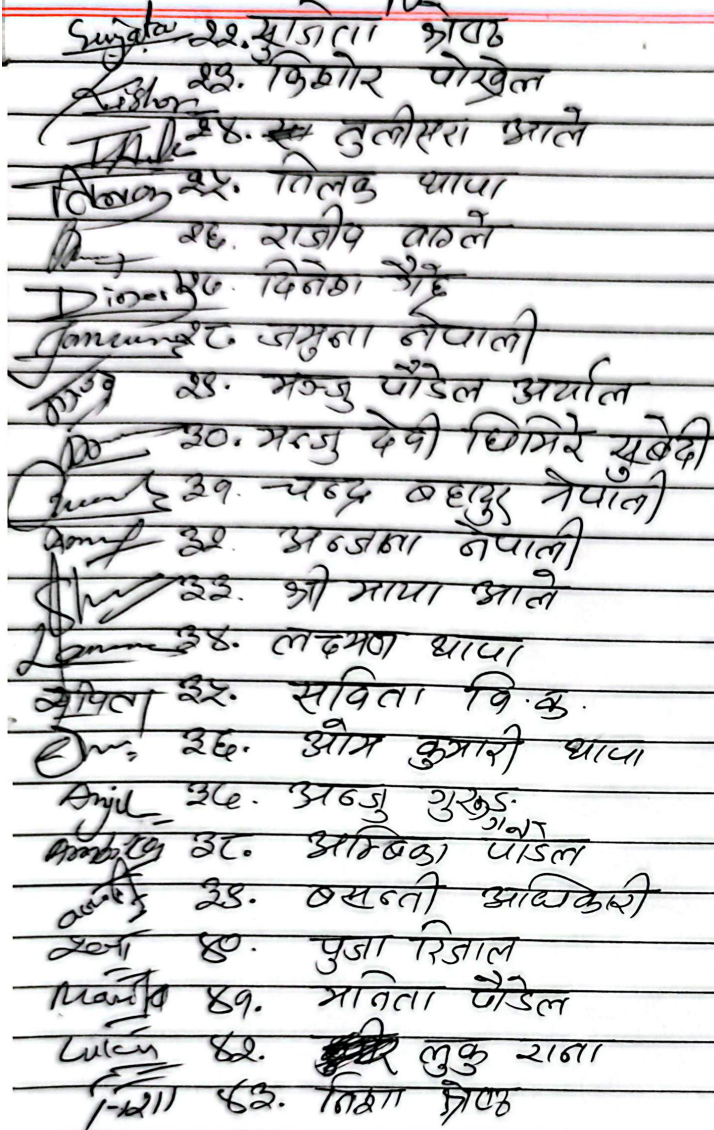 Sujata २२. सुजिता श्रेष्ठ
Kishor २३. किशोर पोखेल
२४. तुलीसरा आले
तिलक २५. तिलक थापा
२६. राजीव वाग्ले
Dinesh २७. दिनेश गैह्रे
Jamuna २८. जमुना नेपाली
मञ्जु २९. मञ्जु पौडेल अर्याल
३०. मन्जु देवी घिमिरे सुबेदी
३१. चन्द्र बहादुर नेपाली
३२. अन्जना नेपाली
३३. श्री माया आले
३४. लक्ष्मण थापा
सविता ३५. सविता वि.क.
३६. ओम कुमारी थापा
Anju ३७. अन्जु गुरूङ
Ambika ३८. अम्बिका पौडेल
३९. बसन्ती अधिकारी
४०. पुजा रिजाल
Manita ४१. मनिता पौडेल
४२. लुकु राना
निशा ४३. निशा श्रेष्ठ